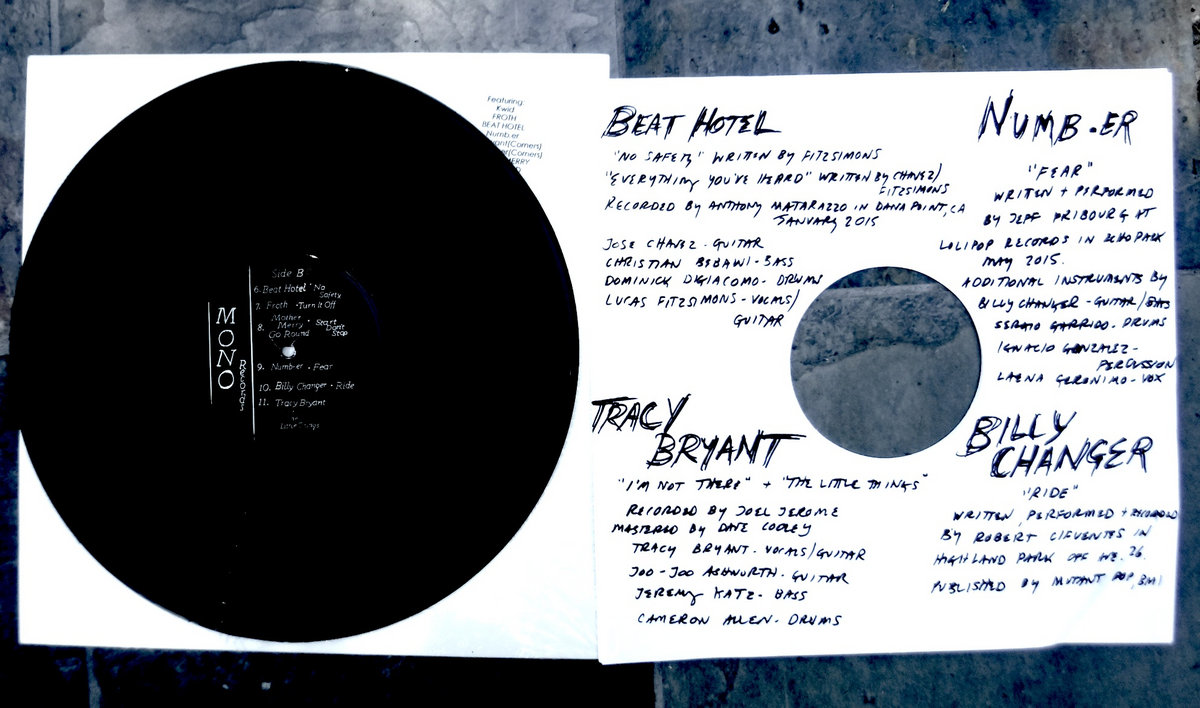 Featuring
Kwid
FROTH
BEAT HOTEL
Numb.er
(Corners)
(Corners)
MERRY
Side B
6. Beat Hotel · No
Safety
7. Froth · Turn it Off
8. Mother
Merry · Start
Go Round Don't
Stop
9. Numb.er · Fear
10. Billy Changer · Ride
11. Tracy Bryant
MONO
Records
BEAT HOTEL
"NO SAFETY" WRITTEN BY FITZSIMONS
"EVERYTHING YOU'VE HEARD" WRITTEN BY CHAVEZ/
FITZSIMONS
RECORDED BY ANTHONY MATARAZZO IN DANA POINT, CA
JANUARY 2015
JOSE CHAVEZ - GUITAR
CHRISTIAN BEBAWI - BASS
DOMINICK DIGIACOMO - DRUMS
LUCAS FITZSIMONS - VOCALS/
GUITAR
NUMB.ER
"FEAR"
WRITTEN + PERFORMED
BY JEFF FRIBOURG AT
LOLIPOP RECORDS IN ECHO PARK
MAY 2015.
ADDITIONAL INSTRUMENTS BY
BILLY CHANGER - GUITAR/BASS
SERGIO GARRIDO - DRUMS
IGNACIO GONZALEZ -
PERCUSSION
LAENA GERONIMO - VOX
TRACY
BRYANT
"I'M NOT THERE" + "THE LITTLE THINGS"
RECORDED BY JOEL JEROME
MASTERED BY DAVE COOLEY
TRACY BRYANT - VOCALS/GUITAR
JOO-JOO ASHWORTH - GUITAR
JEREMY KATZ - BASS
CAMERON ALLEN - DRUMS
BILLY
CHANGER
"RIDE"
WRITTEN, PERFORMED + RECORDED
BY ROBERT CIFUENTES IN
HIGHLAND PARK OFF AVE. 26.
PUBLISHED BY MUTANT POP, BMI